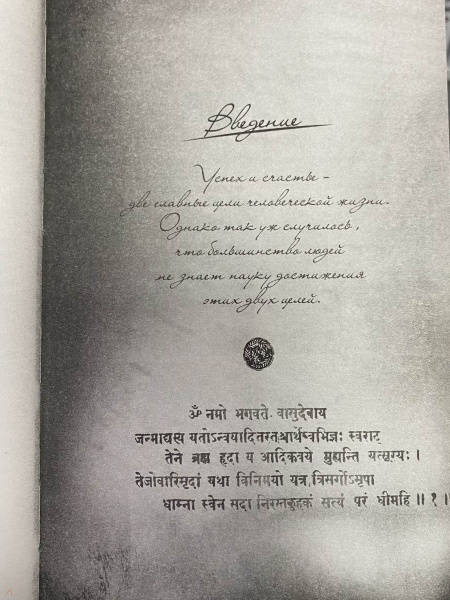 Введение
Успех и счастье –
две главные цели человеческой жизни.
Однако так уж случилось,
что большинство людей
не знает науку достижения
этих двух целей.
ॐ नमो भगवते वासुदेवाय
जन्माद्यस्य यतोऽन्वयादितरतश्चार्थेष्वभिज्ञः स्वराट्
तेने ब्रह्म हृदा य आदिकवये मुह्यन्ति यत्सूरयः।
तेजोवारिमृदां यथा विनिमयो यत्र त्रिसर्गोऽमृषा
धाम्ना स्वेन सदा निरस्तकुहकं सत्यं परं धीमहि॥१॥